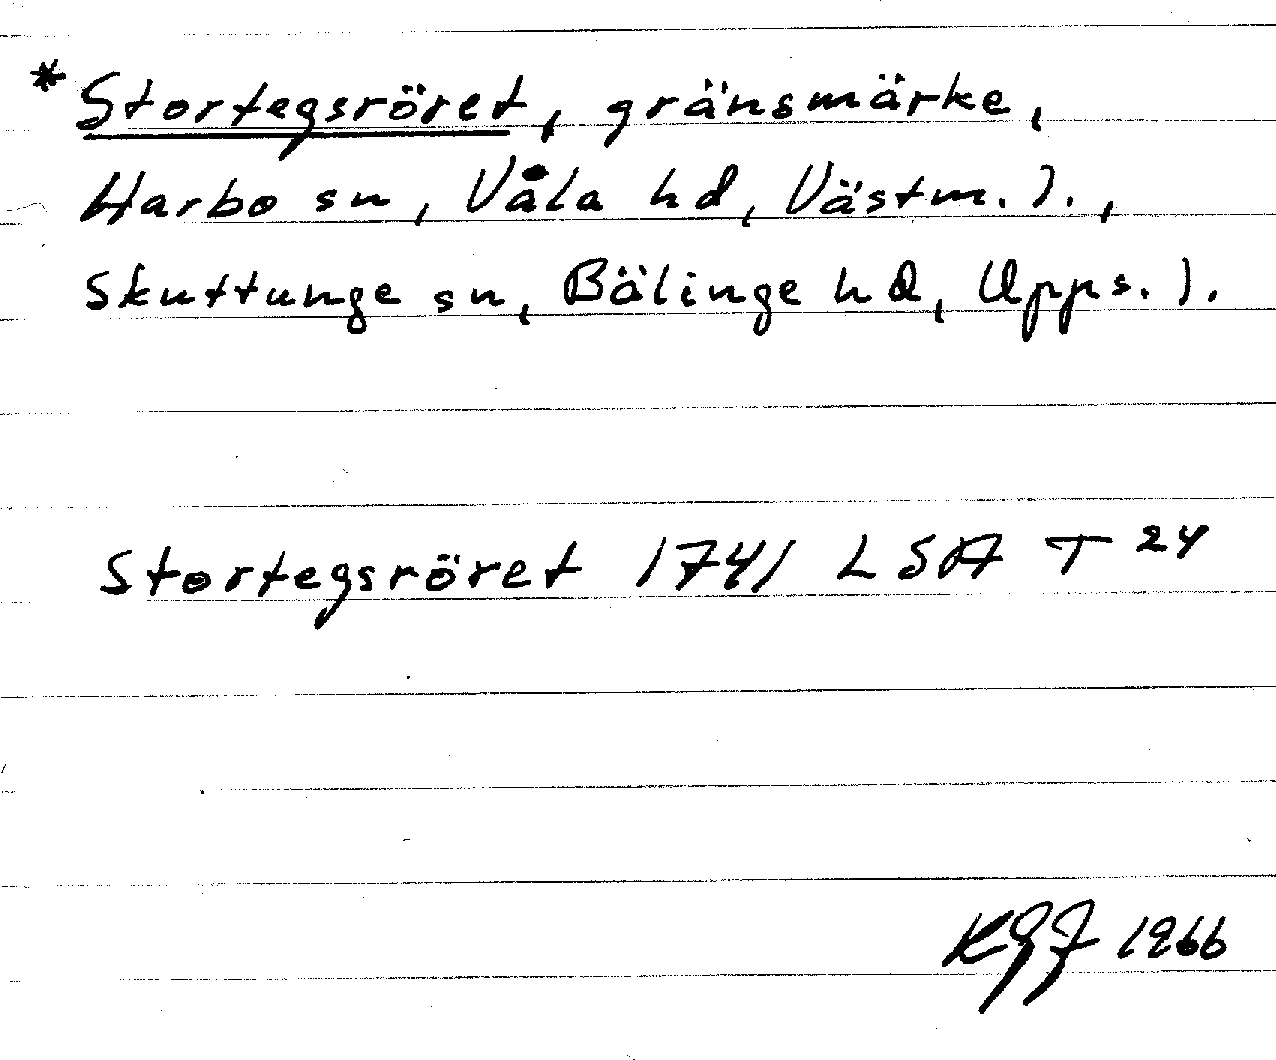 * Stortegsröret, gränsmärke,
Harbo sn, Våla hd, Västm. l.,
Skuttunge sn, Bälinge hd, Upps. l.
Stortegsröret 1741 LSA T 24
KGJ 1966